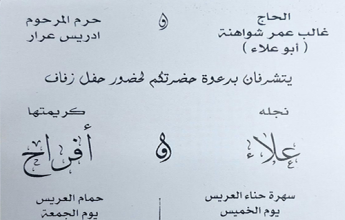 الحاج و حرم المرحوم
غالب عمر شواهنة ادريس عرار
( أبو علاء )
يتشرفان بدعوة حضرتكم لحضور حفل زفاف
نجله كريمتها
علاء و أفراح
سهرة حناء العريس حمام العريس
يوم الخميس يوم الجمعة